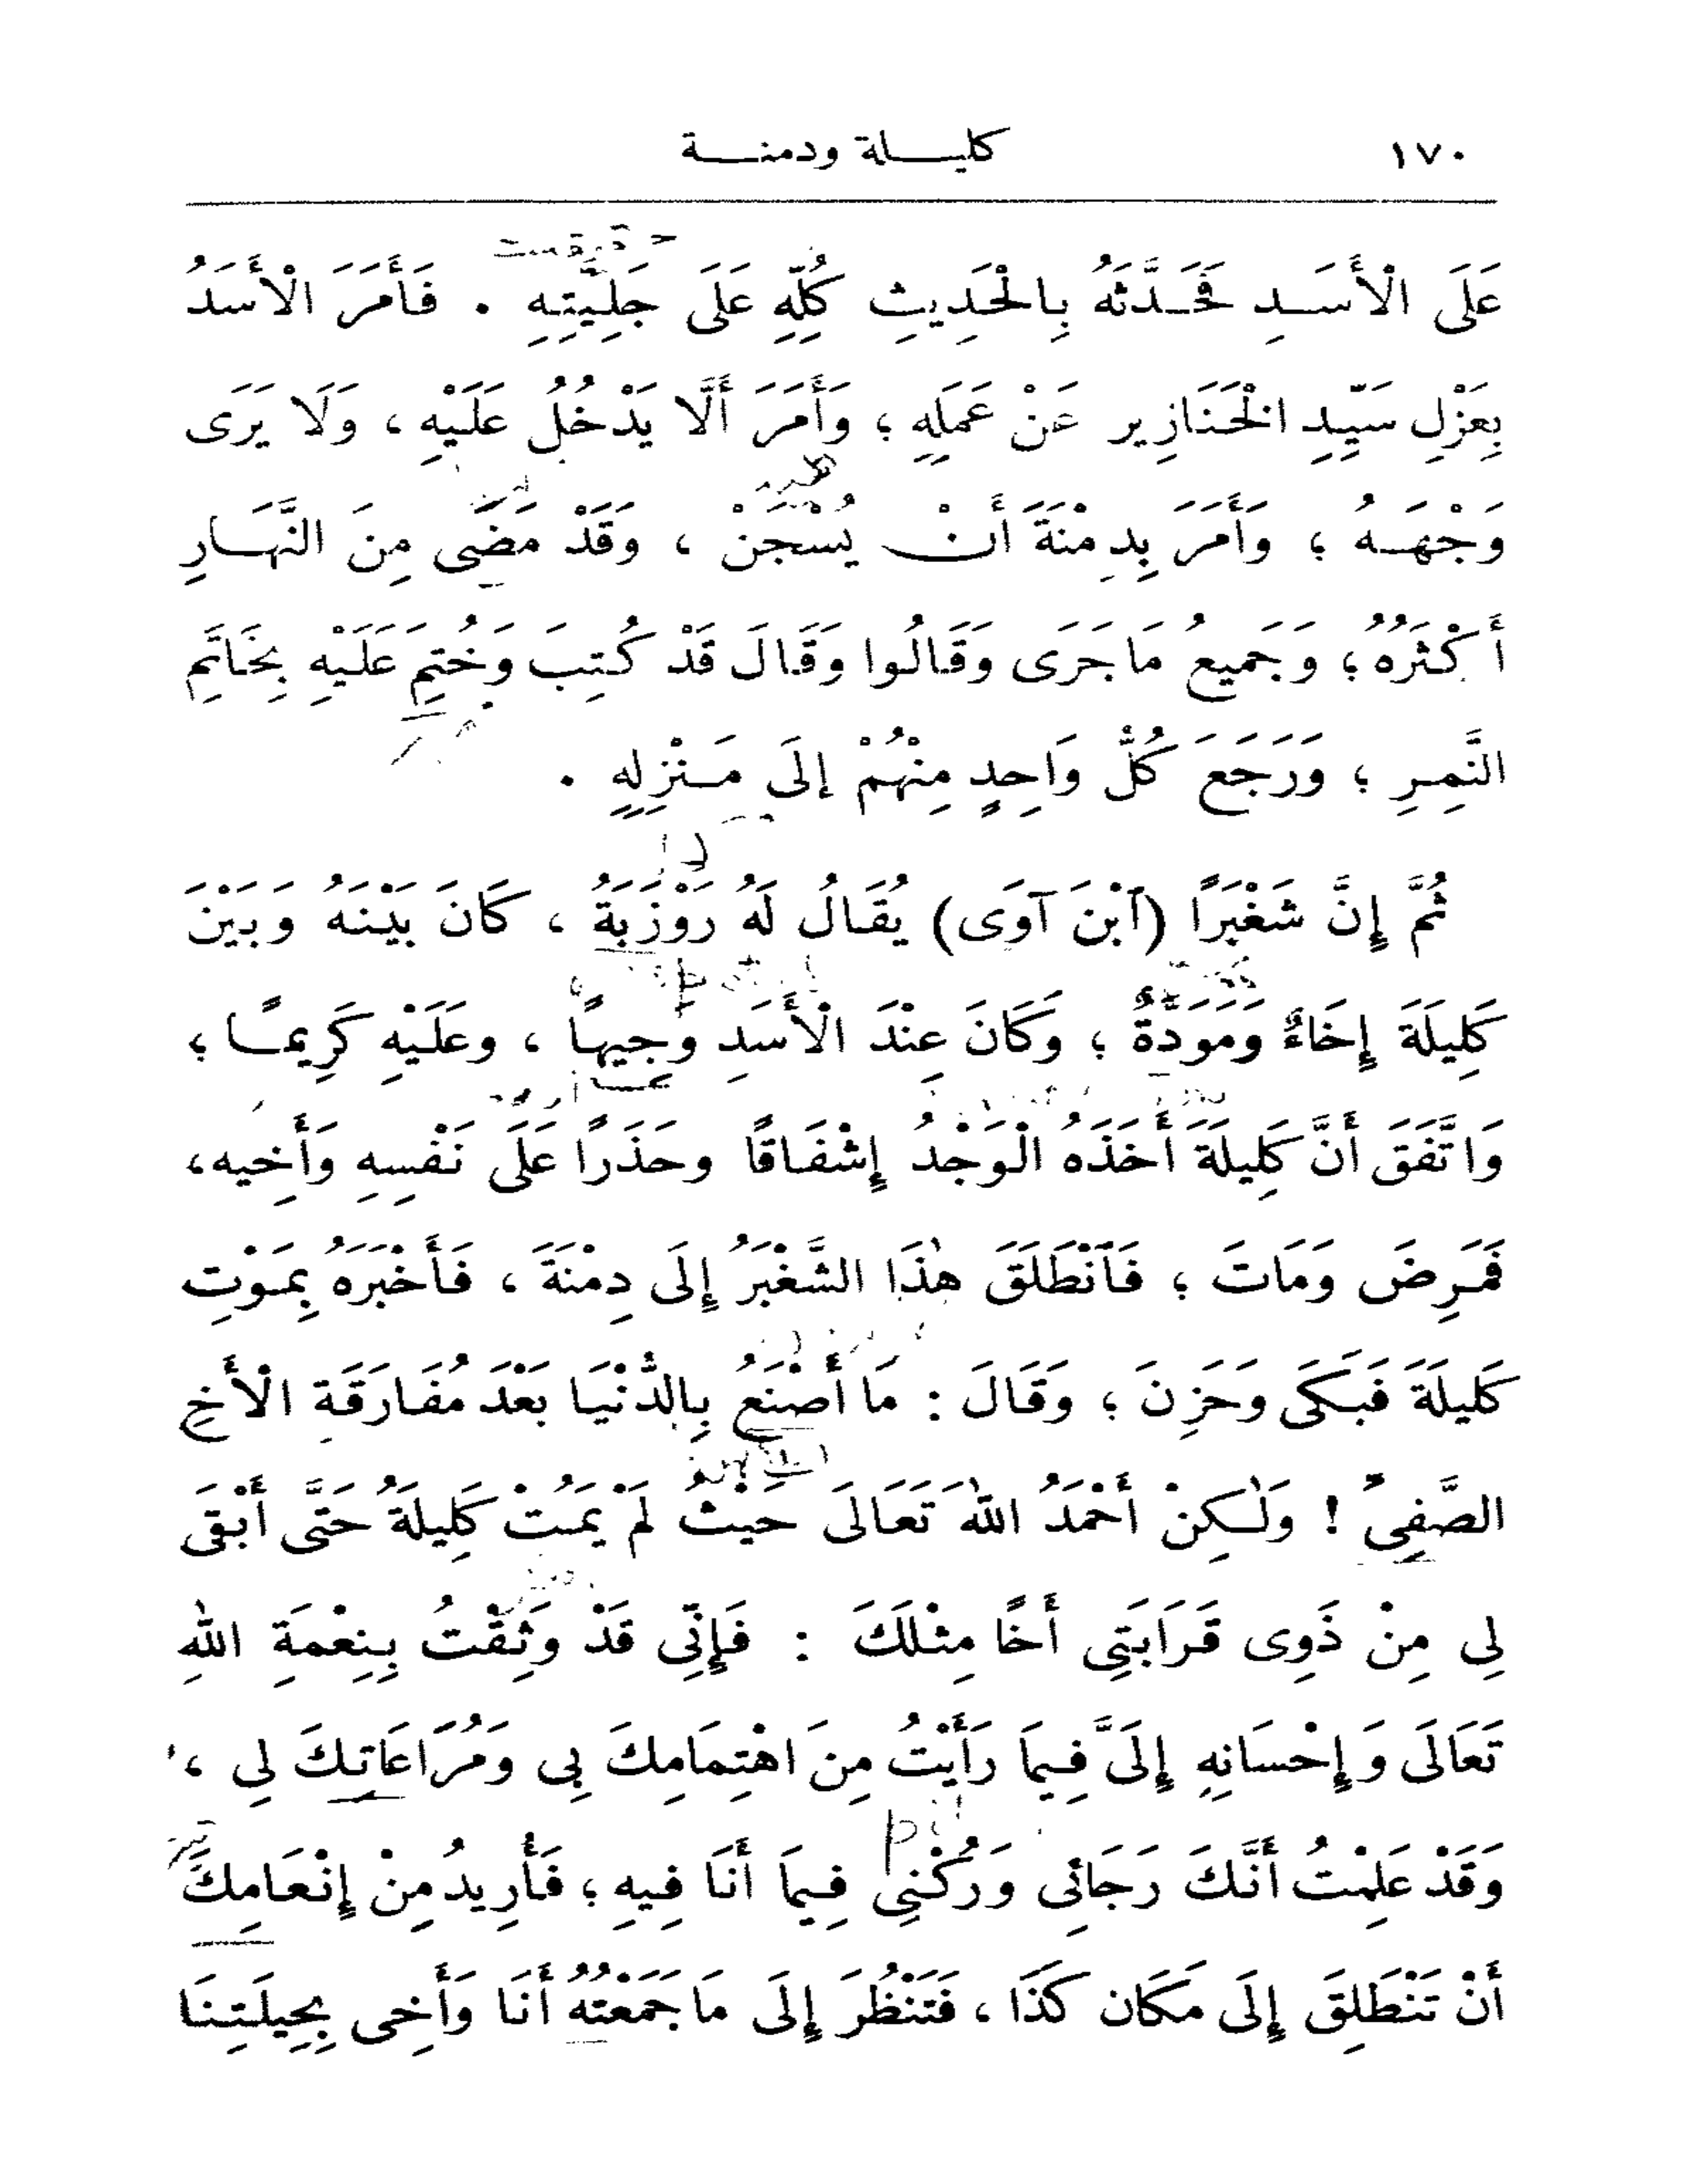 ١٧٠ كليلة ودمنة
عَلَى الْأَسَدِ فَحَدَّثَهُ بِالْحَدِيثِ كُلِّهِ عَلَى جَلِيَّتِهِ . فَأَمَرَ الْأَسَدُ
بِعَزْلِ سَيِّدِ الْخَنَازِيرِ عَنْ عَمَلِهِ ؛ وَأَمَرَ أَلَّا يَدْخُلَ عَلَيْهِ ، وَلَا يَرَى
وَجْهَهُ ؛ وَأَمَرَ بِدِمْنَةَ أَنْ يُسْجَنَ ، وَقَدْ مَضَى مِنَ النَّهَارِ
أَكْثَرُهُ ؛ وَجَمِيعُ مَا جَرَى وَقَالُوا وَقَالَ قَدْ كُتِبَ وَخُتِمَ عَلَيْهِ بِخَاتَمِ
النَّمِرِ ؛ وَرَجَعَ كُلُّ وَاحِدٍ مِنْهُمْ إلَى مَنْزِلِهِ .
ثُمَّ إِنَّ شَغْبَرًا (آبْنَ آوَى) يُقَالُ لَهُ رَوْزَبَةُ ، كَانَ بَيْنَهُ وَبَيْنَ
كَلِيلَةَ إِخَاءٌ وَمَوَدَّةٌ ؛ وَكَانَ عِنْدَ الْأَسَدِ وَجِيهًا ، وعَلَيْهِ كَرِيمًا ؛
وَاتَّفَقَ أَنَّ كَلِيلَةَ أَخَذَهُ الْوَجْدُ إِشْفَاقًا وحَذَرًا عَلَى نَفْسِهِ وَأَخِيه،
فَمَرِضَ وَمَاتَ ؛ فَآنْطَلَقَ هٰذَا الشَّغْبَرُ إِلَى دِمْنَةَ ، فَأَخْبَرَهُ بِمَوْتِ
كَلِيلَةَ فَبَكَى وَحَزِنَ ؛ وَقَالَ : مَا أَصْنَعُ بِالدُّنْيَا بَعْدَ مُفَارَقَةِ الْأَخِ
الصَّفِىِّ ! وَلٰكِنْ أَحْمَدُ اللّٰهَ تَعَالَى حَيْثُ لَمْ يَمُتْ كَلِيلَةُ حَتَّى أَبْقَى
لِى مِنْ ذَوِى قَرَابَتِى أَخًا مِثْلَكَ : فَإِنِّى قَدْ وَثِقْتُ بِنِعْمَةِ اللّٰهِ
تَعَالَى وَإِحْسَانِهِ إِلَىَّ فِيمَا رَأَيْتُ مِنَ اهْتِمَامِكَ بِى وَمُرَاعَاتِكَ لِى ،
وَقَدْ عَلِمْتُ أَنَّكَ رَجَائِى وَرُكْنِى فِيمَا أَنَا فِيهِ ؛ فَأُرِيدُ مِنْ إِنْعَامِكَ
أَنْ تَنْطَلِقَ إِلَى مَكَان كَذَا ، فَتَنْظُرَ إِلَى مَا جَمَعْتُهُ أَنَا وَأَخِى بِحِيلَتِنَا